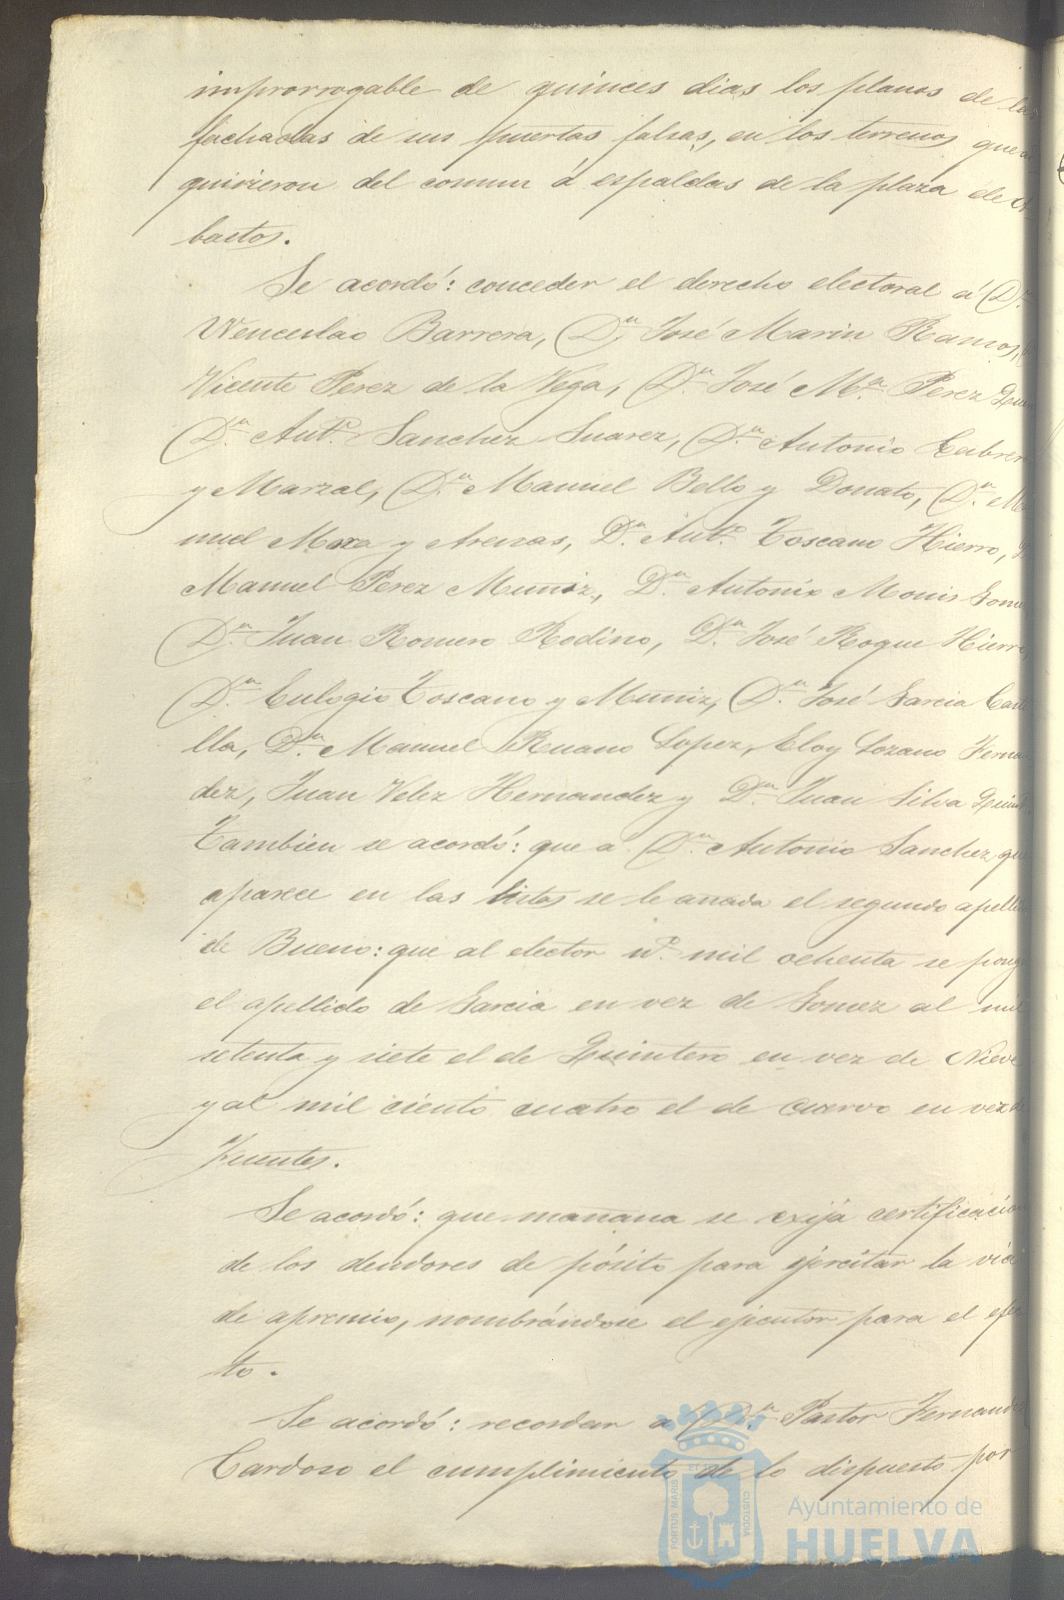 improrrogable de quinces dias los planos de las
fachadas de sus puertas falsas, en los terrenos que
quirieron del comun á espaldas de la plaza de
bastos.
Se acordó: conceder el derecho electoral á Dn.
Wenceslao Barrera, Dn. José Marin Ramos,
Vicente Perez de la Vega, Dn. José Ma. Perez
Dn. Anto. Sanchez Suarez, Dn. Antonio Cabrer
y Marzal, Dn. Manuel Bello y Donato, Dn. Ma
nuel Mora y Arenas, Dn. Anto. Toscano Hierro,
Manuel Perez Muñiz, Dn. Antonio Monis Gome
Dn. Juan Romero Rodino, Dn. José Roque Hierro
Dn. Eulogio Toscano y Muniz, Dn. José Garcia
lla, Dn. Manuel Ruano Lopez, Eloy Lozano Ferna
dez, Juan Velez Hernandez y Dn. Juan Silva
Tambien se acordó: que a Dn. Antonio Sanchez que
aparece en las listas se le anada el segundo apelli
de Bueno: que al elector no. mil ochenta se pong
el apellido de Garcia en vez de Gomez al mil
setenta y siete el de Quintero en vez de Nieve
y al mil ciento cuatro el de Cuervo en vez de
Fuentes.
Se acordó: que mañana se exija certificación
de los deudores de pósito para ejercitar la via
de apremio, nombrándose el ejecutor para el efec
to.
Se acordó: recordar a Dn. Pastor Fernande
Cardoso el cumplimiento de lo dispuesto por
PORTUS MARIS
CUSTODIA
Ayuntamiento de
HUELVA